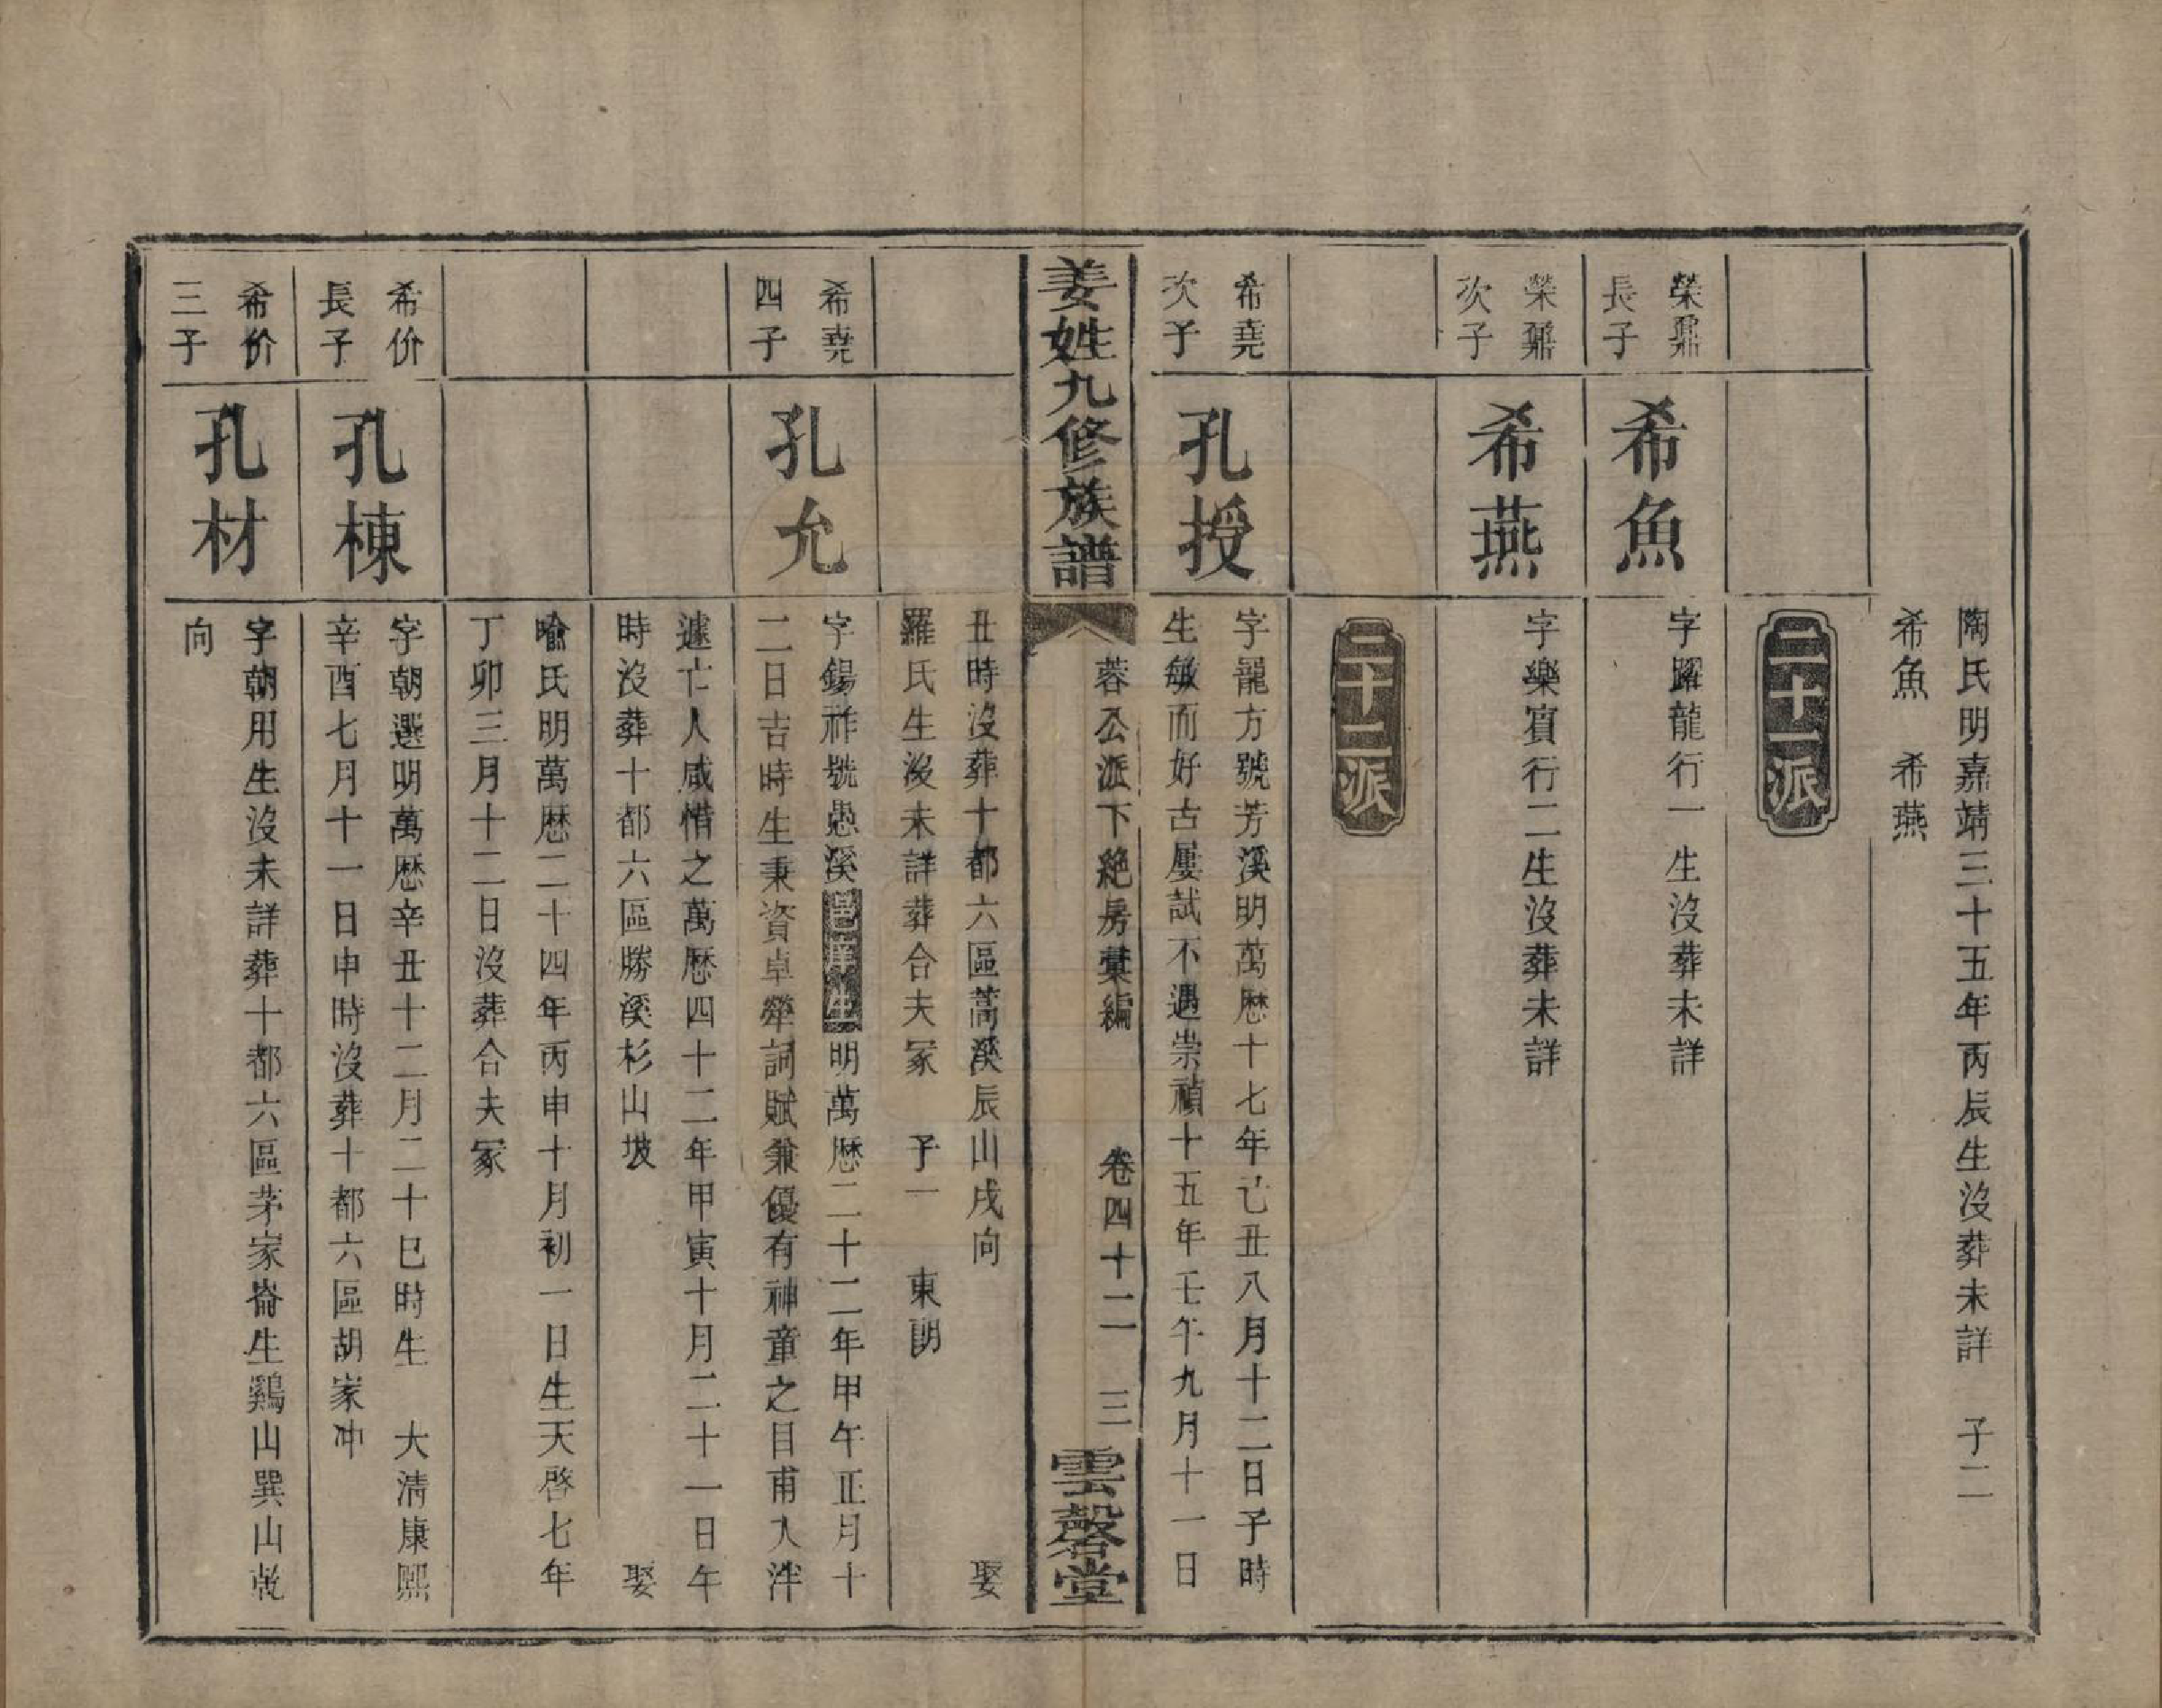 陶氏明嘉靖三十五年丙辰生沒葬未詳　子二
希魚　希燕
二十一派
榮鼐
長子
希魚
字躍龍行一生沒葬未詳
榮鼐
次子
希燕
字樂賓行二生沒葬未詳
二十二派
希堯
次子
孔授
字龍方號芳溪明萬歷十七年己丑八月十二日子時
生敏而好古屢試不遇崇禎十五年壬午九月十一日
姜姓九修族譜
蓉公派下絕房彙編　卷四十二　三
雲磬堂
丑時沒葬十都六區蒿溪辰山戌向　娶
羅氏生沒未詳葬合夫冢　子一　東朗
希堯
四子
孔允
字錫祚號愚溪邑庠生明萬歷二十二年甲午正月十
二日吉時生秉資卓犖詞賦兼優有神童之目甫入泮
遽亡人咸惜之萬歷四十二年甲寅十月二十一日午
時沒葬十都六區勝溪杉山坡　娶
喻氏明萬歷二十四年丙申十月初一日生天啓七年
丁卯三月十二日沒葬合夫冢
希价
長子
孔棟
字朝選明萬歷辛丑十二月二十巳時生　大清康熙
辛酉七月十一日申時沒葬十都六區胡家冲
希价
三子
孔材
字朝用生沒未詳葬十都六區茅家崙生鷄山巽山乾
向